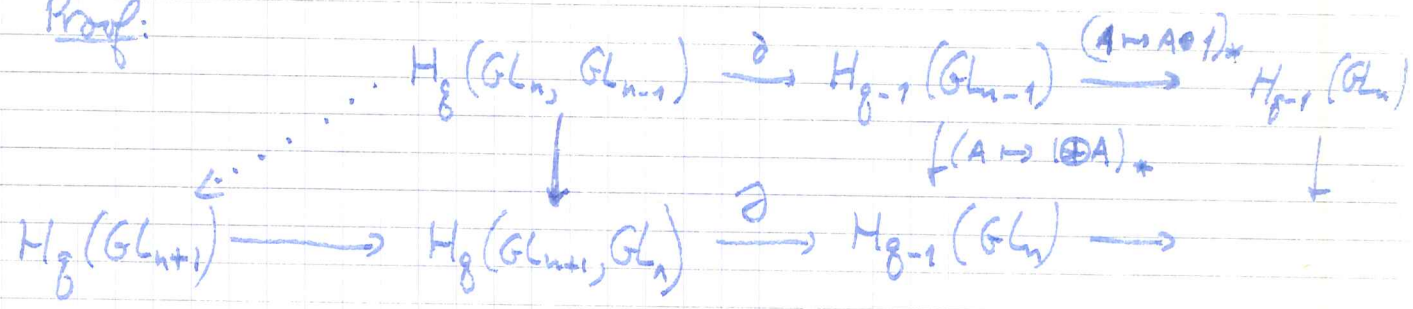 Proof:
H_q(GL_n, GL_{n-1}) \xrightarrow{∂} H_{q-1}(GL_{n-1}) \xrightarrow{(A ↦ A⊕1)_*} H_{q-1}(GL_n)
↓ ↓ (A ↦ 1⊕A)_* ↓
H_q(GL_{n+1}) ⟶ H_q(GL_{n+1}, GL_n) \xrightarrow{∂} H_{q-1}(GL_n) ⟶